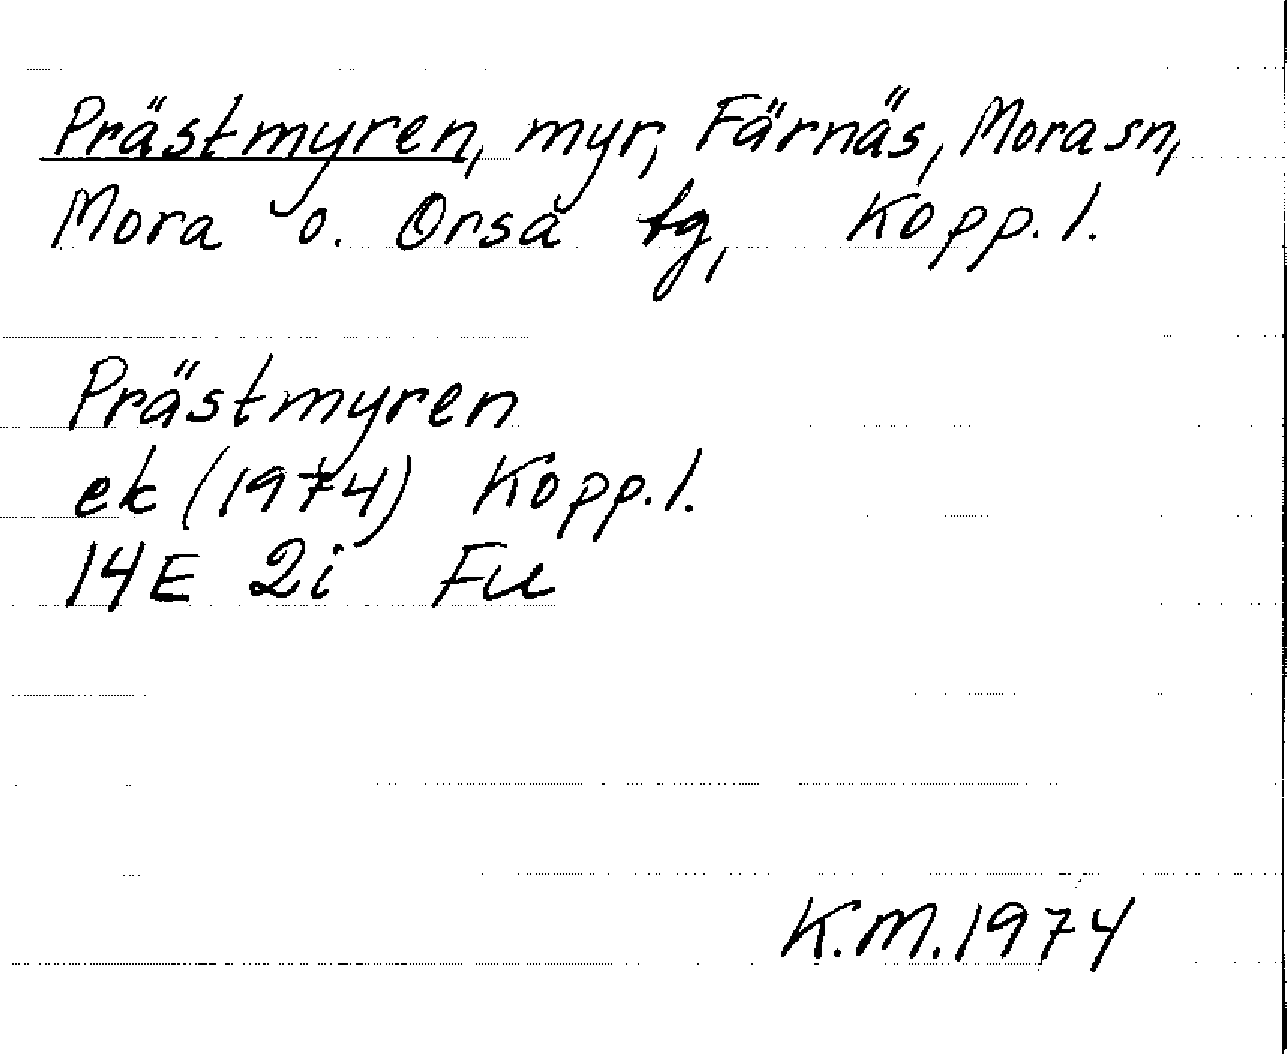 Prästmyren, myr, Färnäs, Mora sn,
Mora o. Orsa tg, Kopp. l.
Prästmyren
ek (1974) Kopp. l.
14E 2i Fu
K.M. 1974